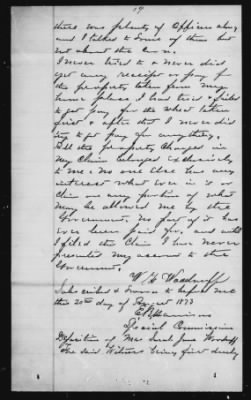 19
there was plenty of Officers along
and I talked to some of them but
not about the corn.
I never tried to & never did
get any receipt or pay for
the property taken from my
home place I had tried & failed
to get pay for the wheat taken
first & after that I never did
try to get pay for anything.
All the property charged in
my Claim belonged exclusively
to me & no one else has any
interest what ever in it or
claim on any portion of what
may be allowed me by the
Government, no part of it has
ever been paid for, and until
I filed this Claim I have never
presented my account to the
Government.
W. H. Woodruff
Subscribed & Sworn to before me
this 20th day of August 1873
Special Commissioner
Deposition of Mrs Sarah Jane Woodruff
The said Witness being first duly